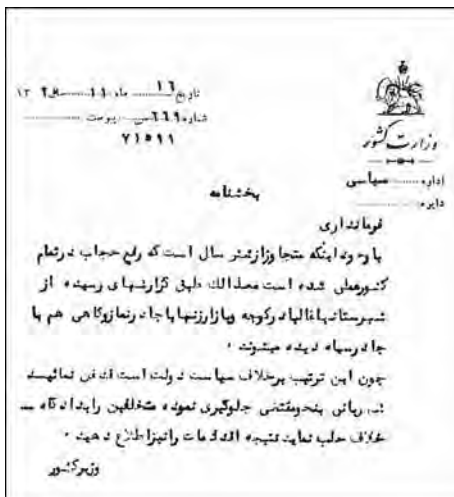 تاریخ ۱۶ ماه ۱۱ ۱۳۲
شماره ۶۶۹ س پیوست
۷۱۵۹۱
وزارت کشور
اداره سیاسی
دایره
بخشنامه
فرمانداری
با وجود اینکه متجاوز از سال است که رفع حجاب در تمام
کشور عملی شده است معذالك طبق گزارشهای رسیده از
شهرستانها غالبا در کوچه و بازار زنها با چادر نماز و گاهی هم با
چادر سیاه دیده میشوند .
چون این ترتیب برخلاف سیاست دولت است قدغن نمائید
شهربانی بنحو مقتضی جلوگیری نموده متخلفین را بدادگاه
خلاف جلب نماید نتیجه اقدامات را نیز اطلاع دهید .
وزیر کشور